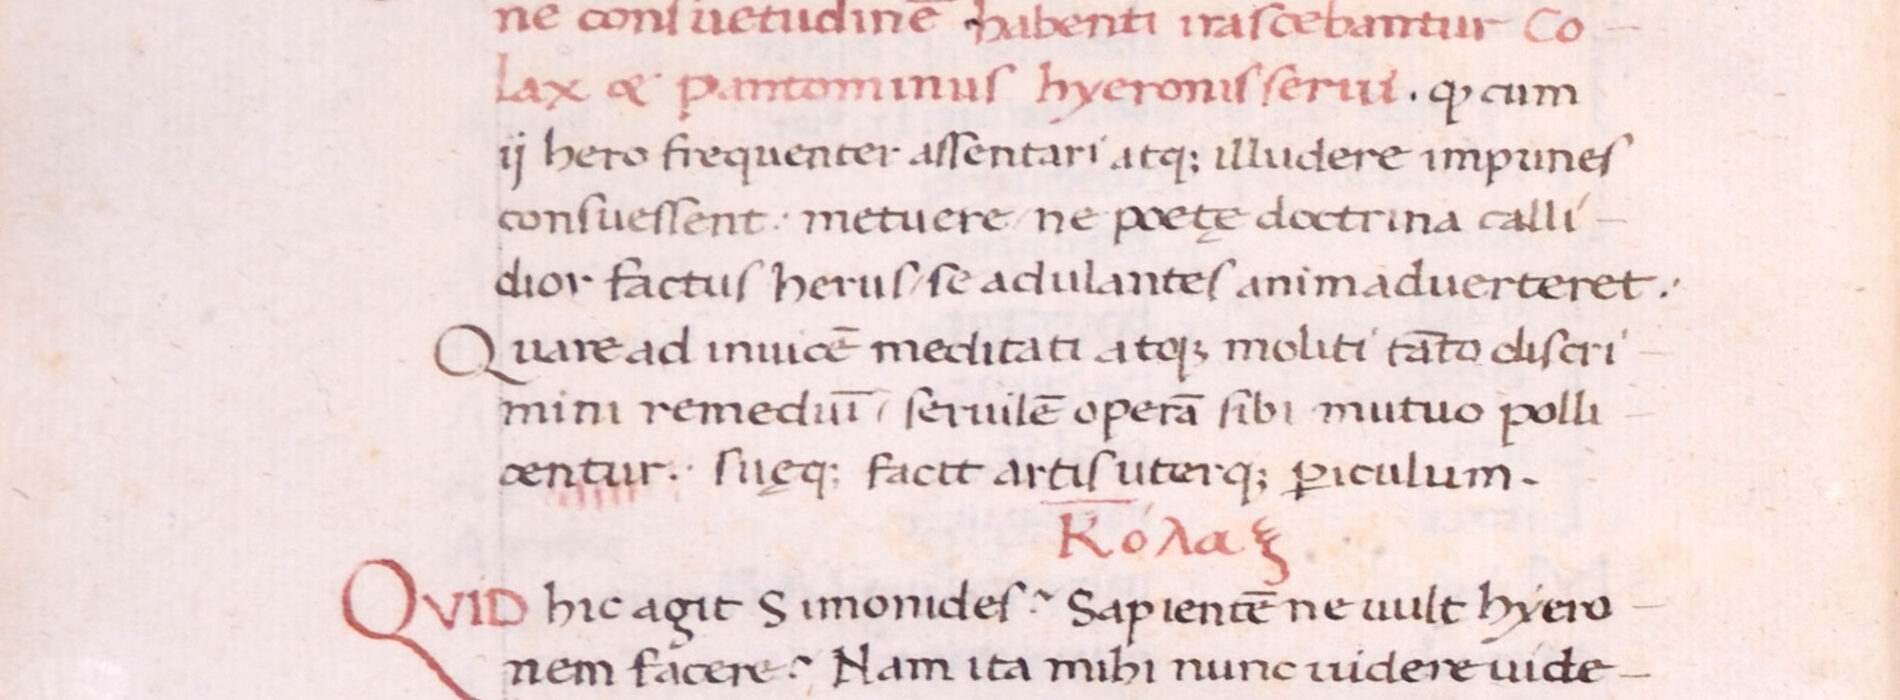 ne conſuetudinē habenti iraſcebantur Co–
lax & pantomimus hyeronis ſerui . ꝙ cum
ij hero frequenter aſſentari atq; illudere impuneſ
conſueſſent : metuere / ne poetę doctrina calli–
dior factuſ heruſ / ſe adulanteſ animaduerteret .
Quare ad inuicē meditati atq; moliti tāto diſcri–
mini remediū / ſeruilē operā ſibi mutuo polli–
centur : ſuęq; facit artiſ uterq; ꝑiculum .
Κόλαξ
QVID hic agit Simonideſ ? Sapientē ne uult hyero–
nem facere ? Nam ita mihi nunc uidere uide–